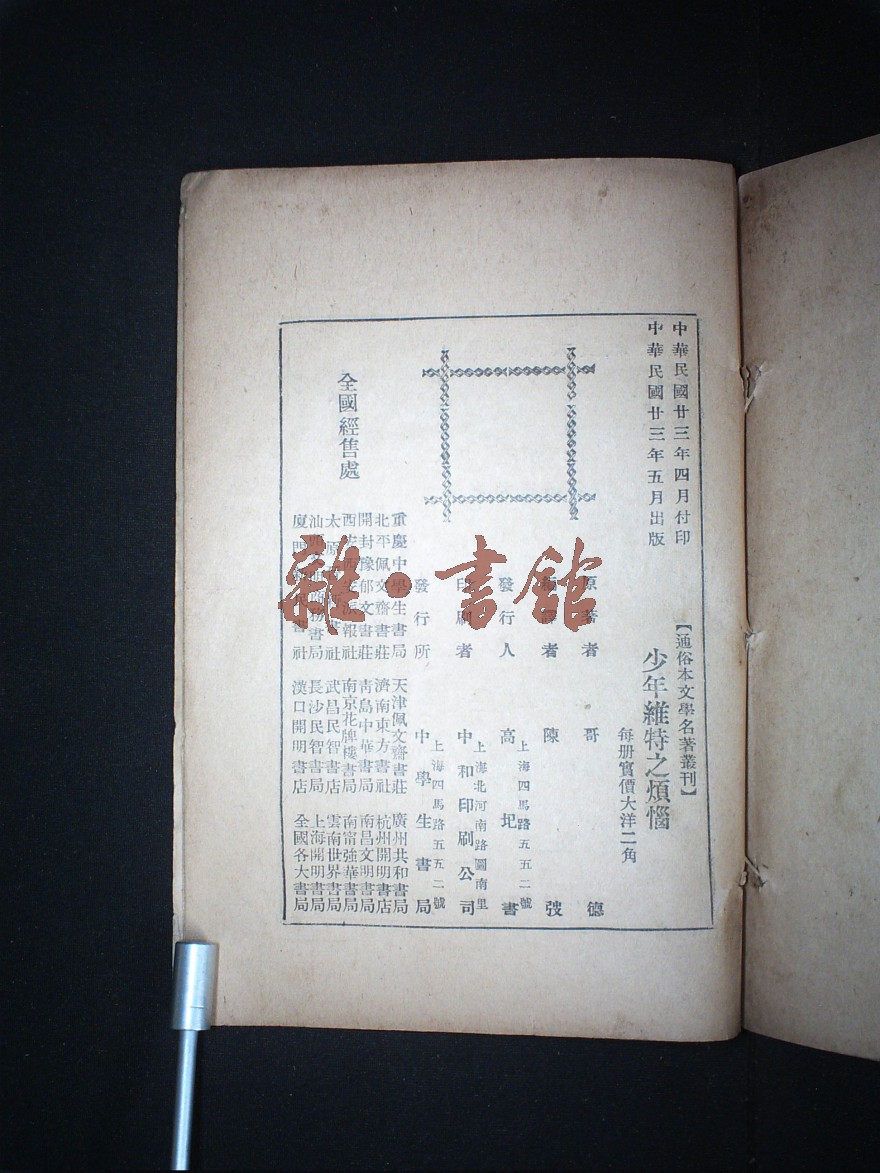 中華民國廿三年四月付印
中華民國廿三年五月出版
【通俗本文學名著叢刊】
少年維特之煩惱
每册實價大洋二角
原著者 哥德
譯者 陳弢
發行人 高圯書
上海四馬路五五二號
印刷者 中和印刷公司
上海北河南路圖南里
發行所 中學生書局
上海四馬路五五二號
全國經售處
重慶中學生書局 天津佩文齋書莊 廣州共和書局
北平佩文齋書莊 濟南東方書社 杭州開明書店
開封豫郁文書莊 靑島中華書局 南昌文明書局
西報社 南京花牌樓書局 南甯強華書局
太原書社 武昌民智書店 雲南世界書局
汕頭務書局 長沙民智書局 上海開明書局
廈門書社 漢口開明書店 全國各大書局
雜·書館